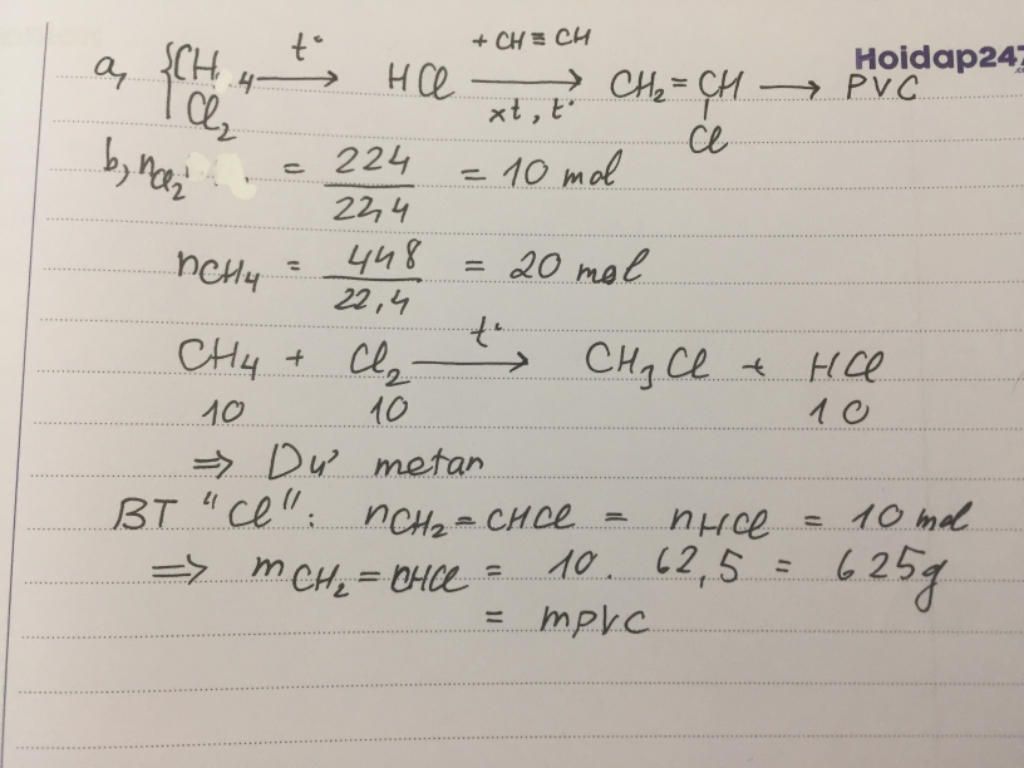 Hoidap247
+ CH ≡ CH
a, { CH4 Cl2 —t°→ HCl —xt, t°→ CH2 = CH → PVC
Cl
b, nCl2 = 224 / 22,4 = 10 mol
nCH4 = 448 / 22,4 = 20 mol
CH4 + Cl2 —t°→ CH3Cl + HCl
10 10 10
=> Dư metan
BT "Cl": nCH2=CHCl = nHCl = 10 mol
=> mCH2=CHCl = 10. 62,5 = 625g
= mPVC